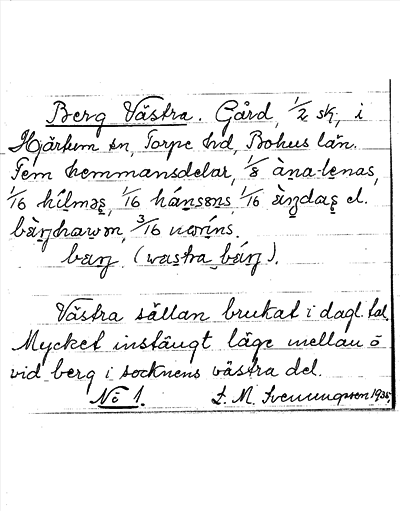 Berg Västra. Gård, 1/2 sk, i
Hjärtum sn, Torpe hd, Bohus län.
Fem hemmansdelar, 1/8 àna-lenas,
1/16 hílməs, 1/16 hánsəns, 1/16 àŋdas el.
bæ̀ŋhawən, 3/16
bæŋ. (wastra bǽŋ).
Västra sällan brukat i dagl. tal.
Mycket instängt läge mellan o
vid berg i socknens västra del.
No 1. L. M. Svenungsson 1935